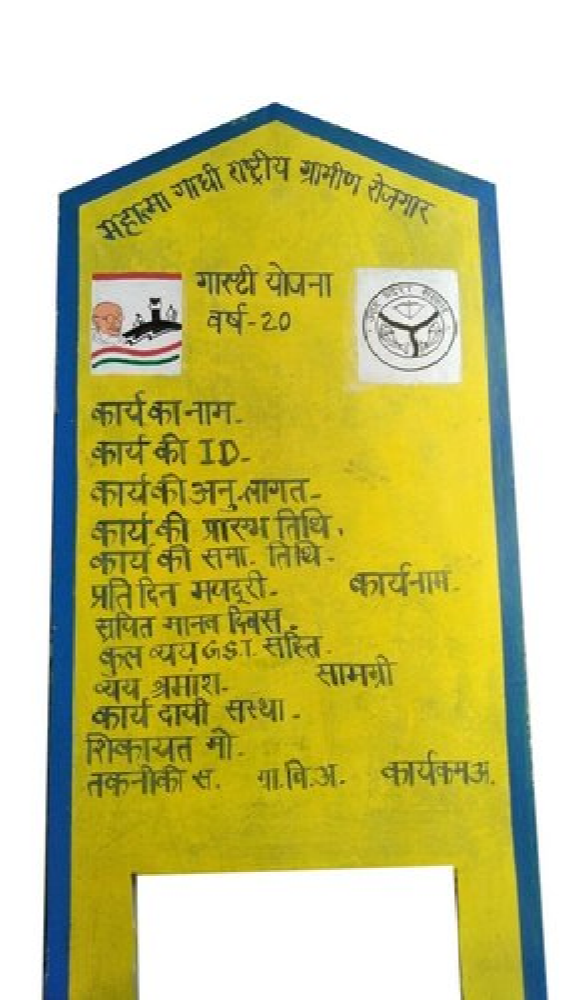 महात्मा गाधी राष्ट्रीय ग्रामीण रोजगार
गारन्टी योजना
वर्ष-20
कार्य का नाम-
कार्य की ID-
कार्य की अनु.लागत-
कार्य की प्रारम्भ तिथि.
कार्य की समा. तिथि-
प्रति दिन मजदूरी- कार्यनाम-
सृजित मानव दिवस-
कुल व्यय G.S.T. सहित-
व्यय श्रमांश- सामग्री
कार्य दायी सस्था-
शिकायत मो-
तकनीकी स. ग्रा.वि.अ. कार्यक्रमअ.